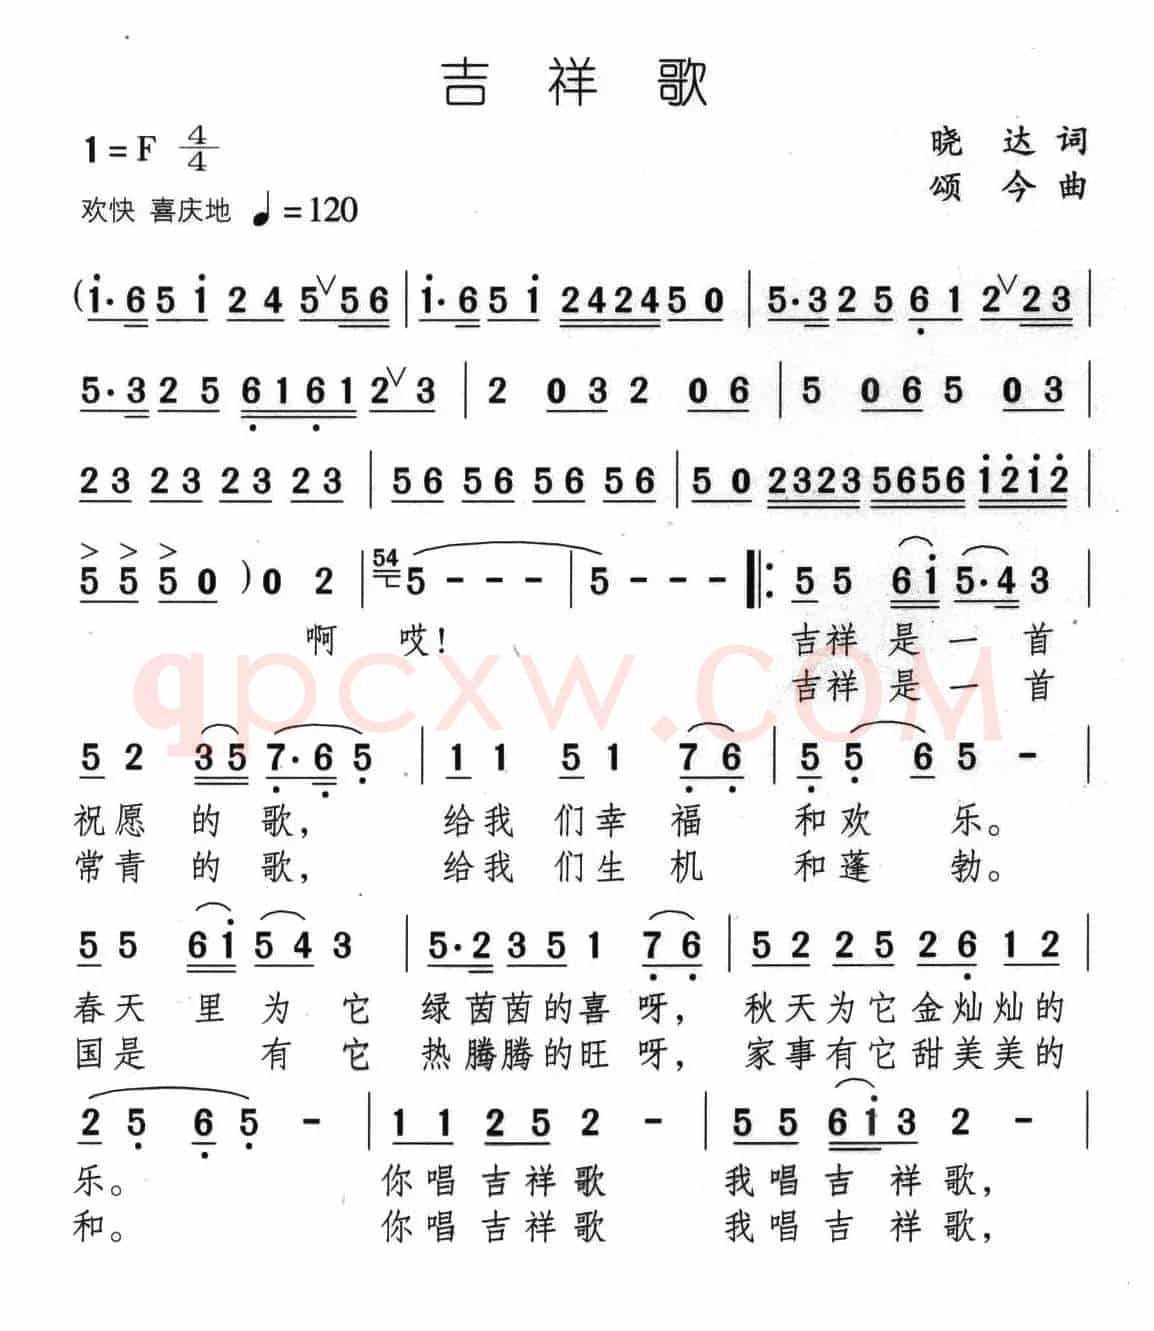 吉祥歌
1=F 4/4
晓达词
颂今曲
欢快 喜庆地 ♩=120
(i·6 5i 24 5∨56 | i·6 5i 2424 50 | 5·3 25 61 2∨23 |
5·3 25 6161 2∨3 | 2 03 2 06 | 5 06 5 03 |
23 23 23 23 | 56 56 56 56 | 50 2323 5656 i2i2 |
> > >
55 50) 0 2 | 54 5 - - - | 5 - - - ‖: 5 5 6i 5·4 3
啊 哎! 吉祥 是 一 首
吉祥 是 一 首
5 2 35 7·6 5 | 1 1 5 1 76 | 5 5 6 5 - |
祝愿 的 歌, 给我 们幸 福 和欢 乐。
常青 的 歌, 给我 们生 机 和蓬 勃。
qpcxw.COM
5 5 6i 54 3 | 5·2 35 1 76 | 52 25 26 12 |
春天 里 为 它 绿茵茵的喜 呀, 秋天为它金灿灿的
国是 有 它 热腾腾的旺 呀, 家事有它甜美美的
2 5 6 5 - | 11 25 2 - | 55 6i3 2 - |
乐。 你唱 吉祥歌 我唱吉 祥歌,
和。 你唱吉祥歌 我唱吉 祥歌,